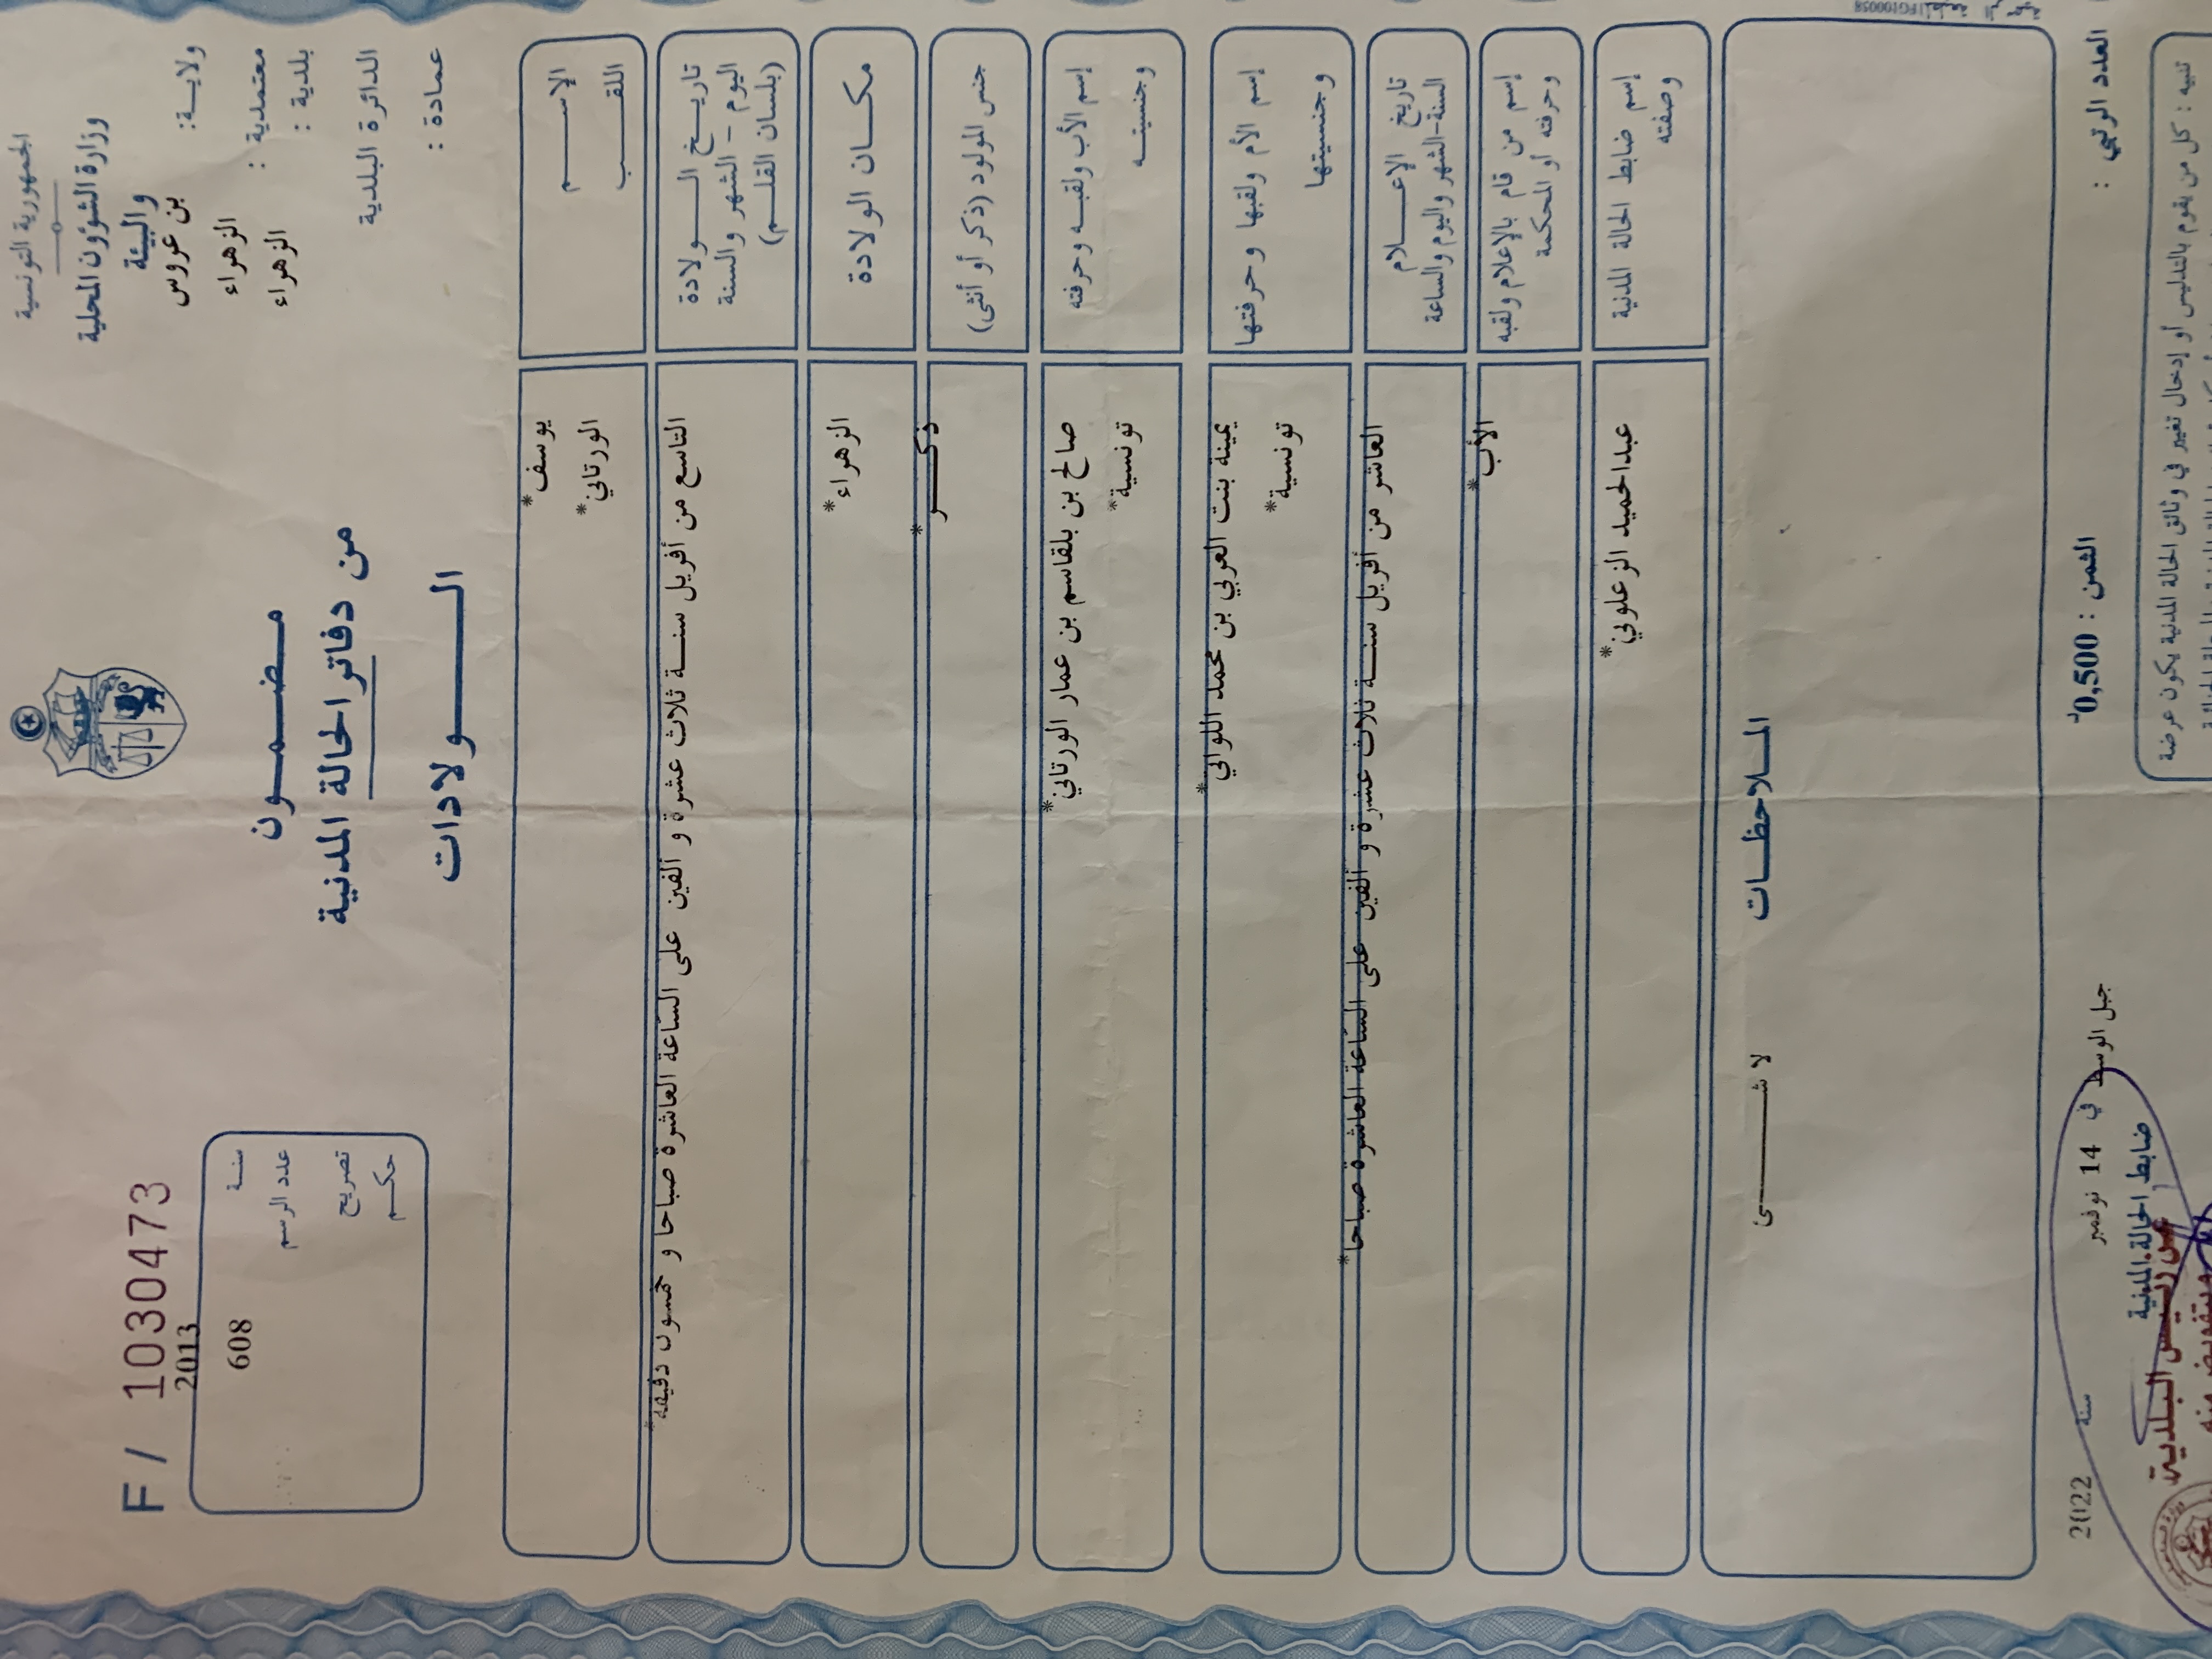 الجمهورية التونسية
وزارة الشؤون المحلية
والبيئة
ولايــة: بن عروس
معتمدية : الزهراء
بلدية : الزهراء
الدائرة البلدية
عمادة :
مـضـمــون
من دفاتر الحالة المدنية
الــولادات
F / 1030473
سنة 2013
عدد الرسم 608
تصريح
حكم
الإســـم يوسف*
اللقـــب الورتاني*
تاريــخ الــولادة
اليوم - الشهر والسنة
(بلسان القلــم)
التاسع من أفريل سنــة ثلاث عشرة و ألفين على الساعة العاشرة صباحا و خمسون دقيقة*
مكــان الولادة الزهراء*
جنس المولود (ذكر أو أنثى) ذكـــر*
إسم الأب ولقبـه وحرفته صالح بن بلقاسم بن عمار الورتاني*
وجنسيتــه تونسية*
إسم الأم ولقبها وحرفتها يمينة بنت العربي بن محمد اللواتي*
وجنسيتها تونسية*
تاريخ الإعــلام
السنة-الشهر واليوم والساعة
العاشر من أفريل سنــة ثلاث عشرة و ألفين على الساعة العاشرة صباحا*
إسم من قام بالإعلام ولقبه
وحرفته أو المحكمة
الأب*
إسم ضابط الحالة المدنية
وصفته
عبدالحميد الزعلوني*
المــلاحظــات
لا شـــــــئ
العدد الرتبي :
الثمن : 0,500د
جبل الوسط في 14 نوفمبر سنة 2022
ضابط الحالة المدنية
عن رئيس البلدية
وبتفويض منه
تنبيه : كل من يقوم بالتدليس أو إدخال تغيير في وثائق الحالة المدنية يكون عرضة